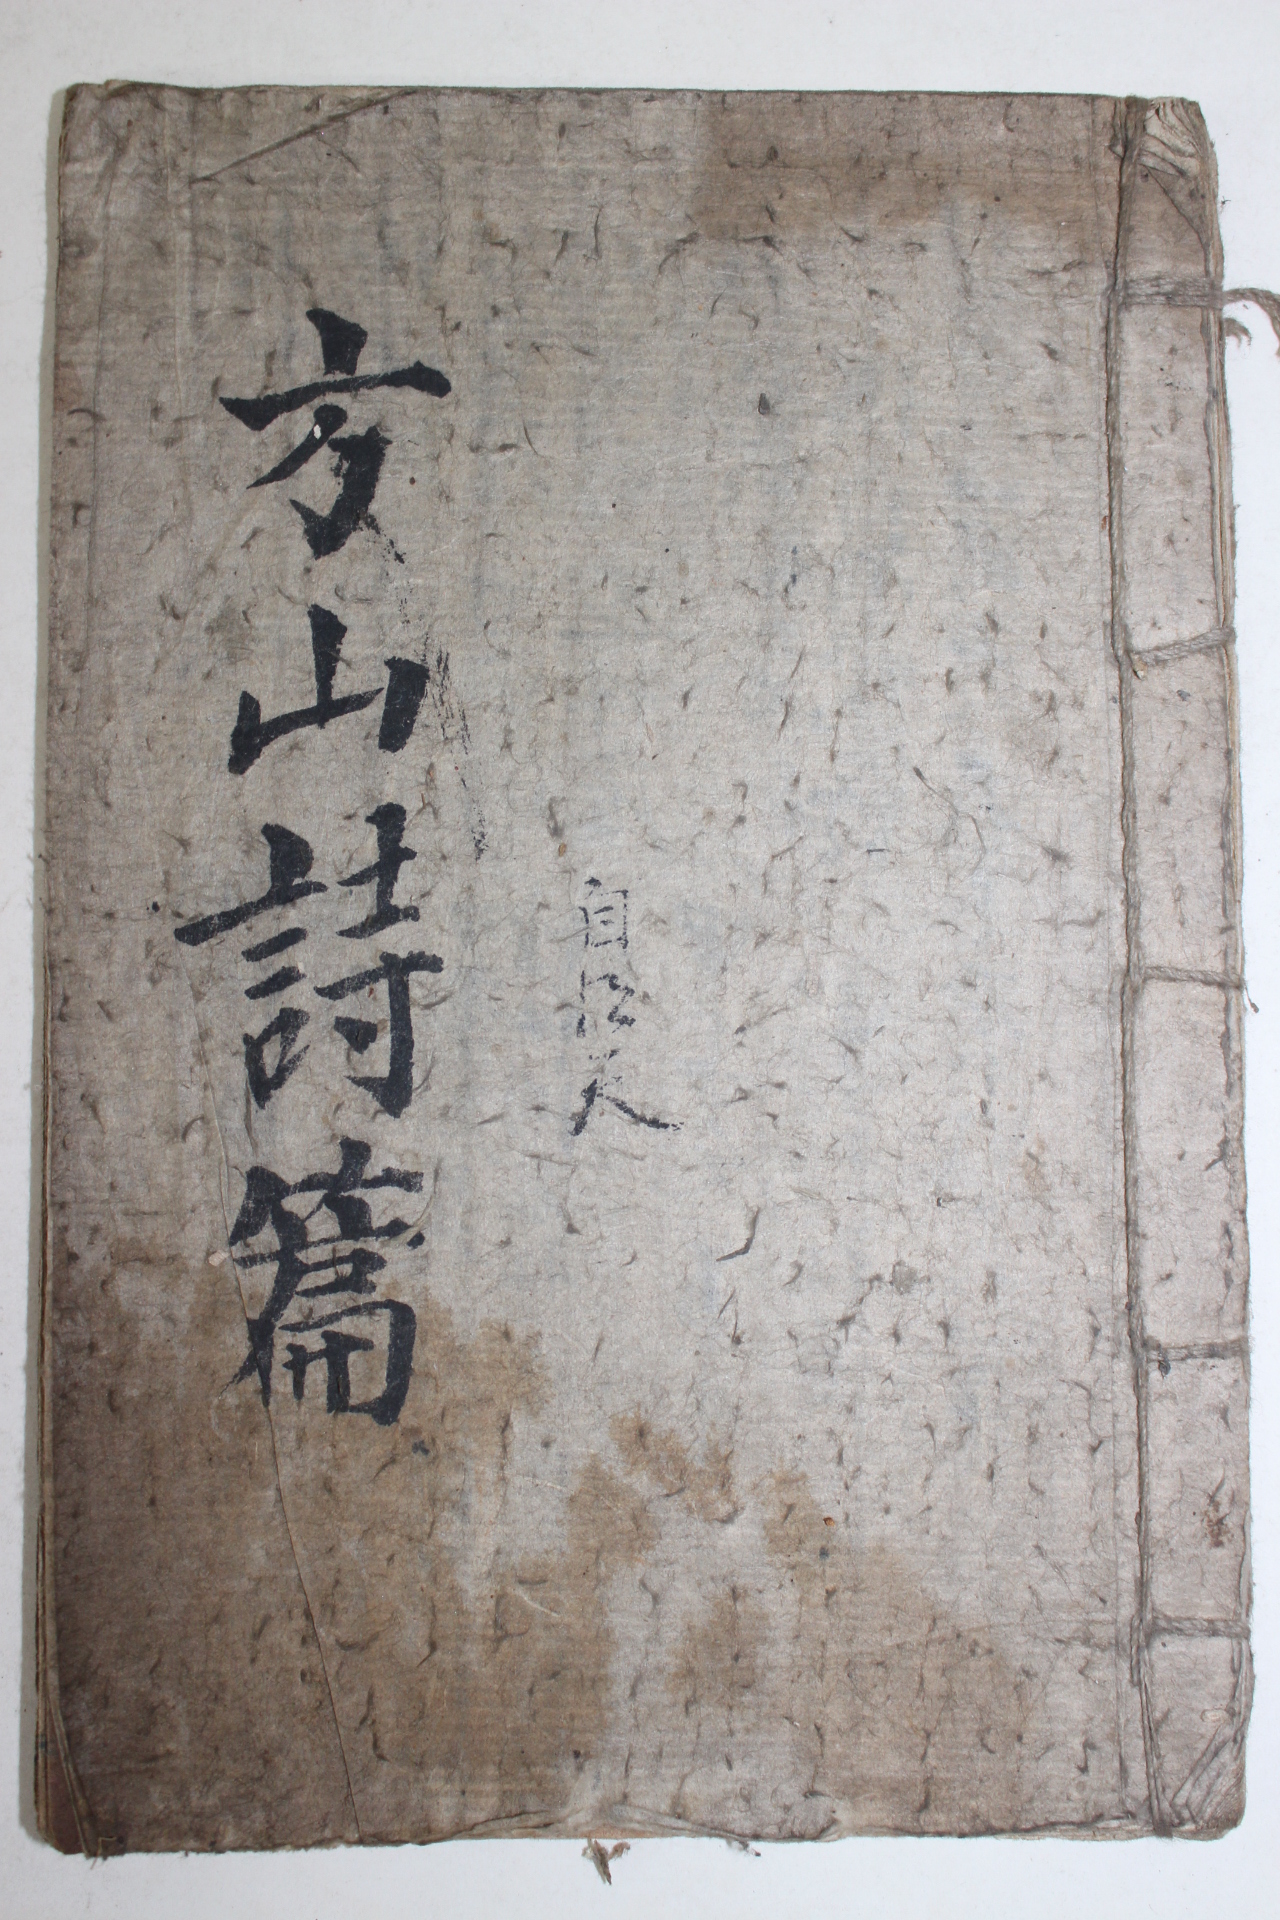 方山詩篇
自江天